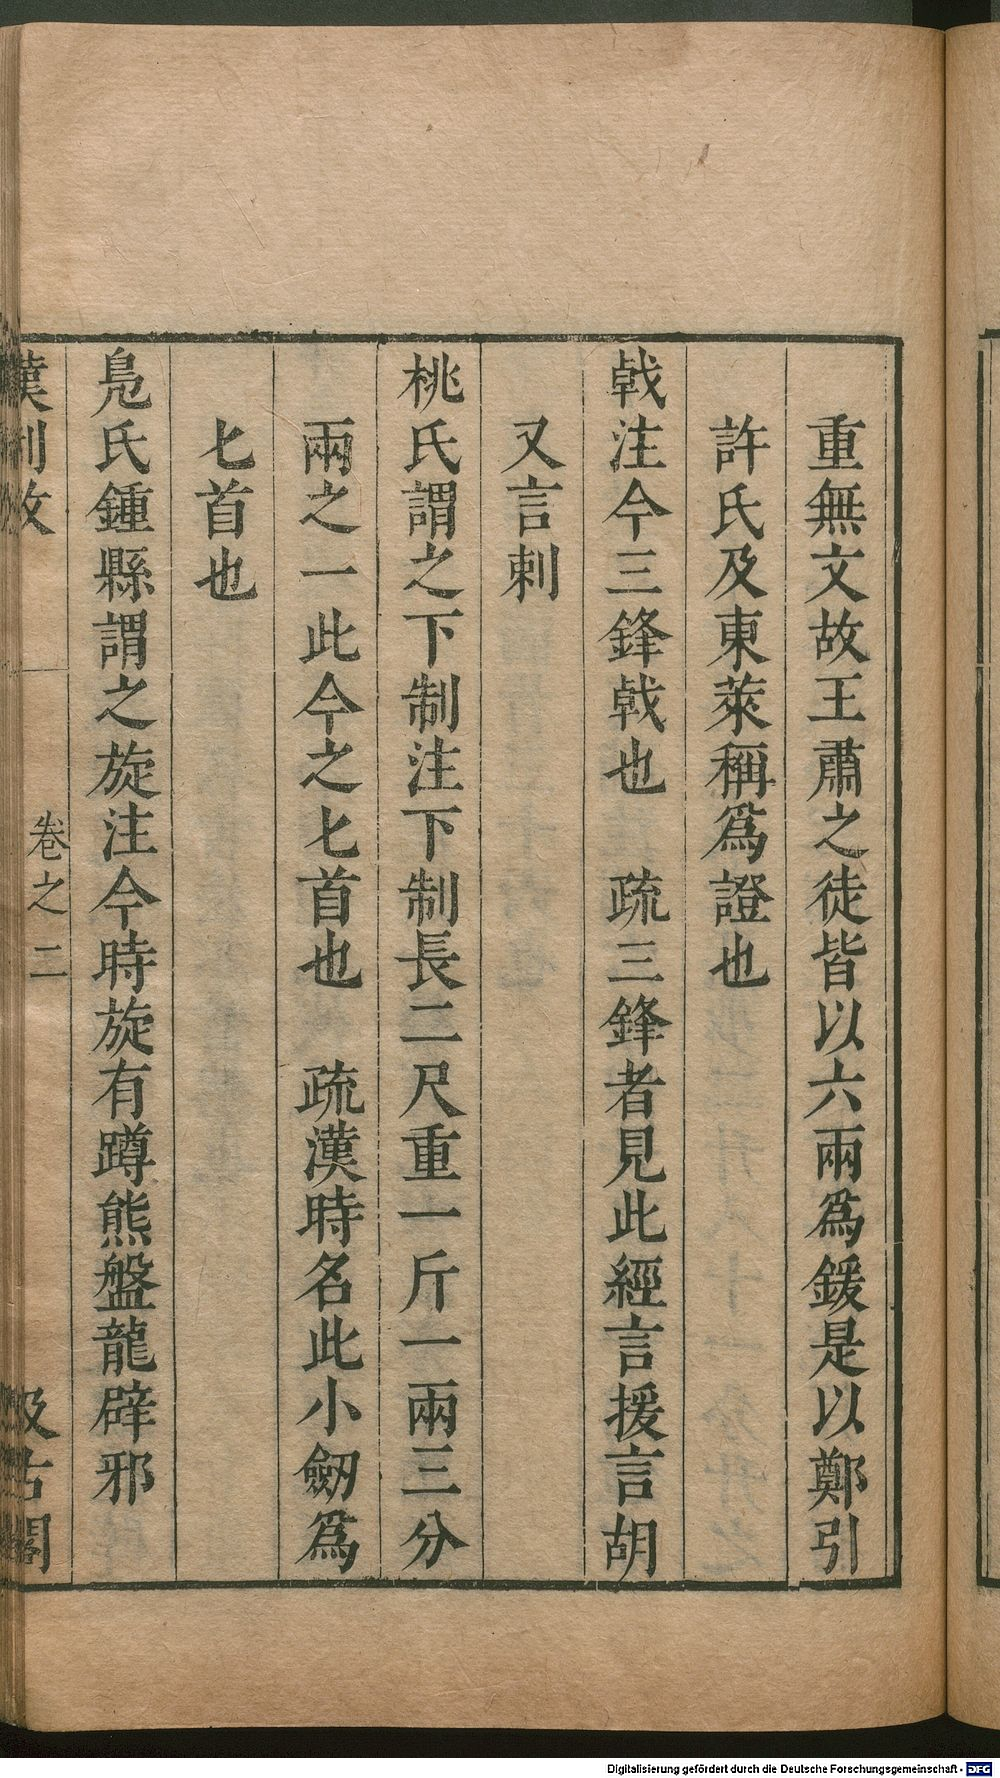 重無文故王肅之徒皆以六兩爲鍰是以鄭引
許氏及東萊稱爲證也
戟注今三鋒戟也 疏三鋒者見此經言援言胡
又言刺
桃氏謂之下制注下制長二尺重一斤一兩三分
兩之一此今之匕首也 疏漢時名此小劒爲
匕首也
鳧氏鍾縣謂之旋注今時旋有蹲熊盤龍辟邪
漢制攷 卷之二 汲古閣
Digitalisierung gefördert durch die Deutsche Forschungsgemeinschaft - DFG